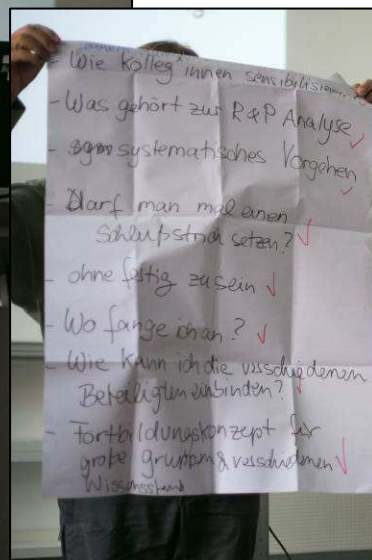 - Wie Kolleg*innen sensibilisieren
- Was gehört zur R&P Analyse ✓
- systematisches Vorgehen ✓
- Darf man mal einen
Schlußstrich setzen? ✓
- ohne fertig zu sein ✓
- Wo fange ich an? ✓
- Wie kann ich die verschiedenen
Beteiligten einbinden? ✓
- Fortbildungskonzept für
große Gruppen & verschiedenen ✓
Wissensstand